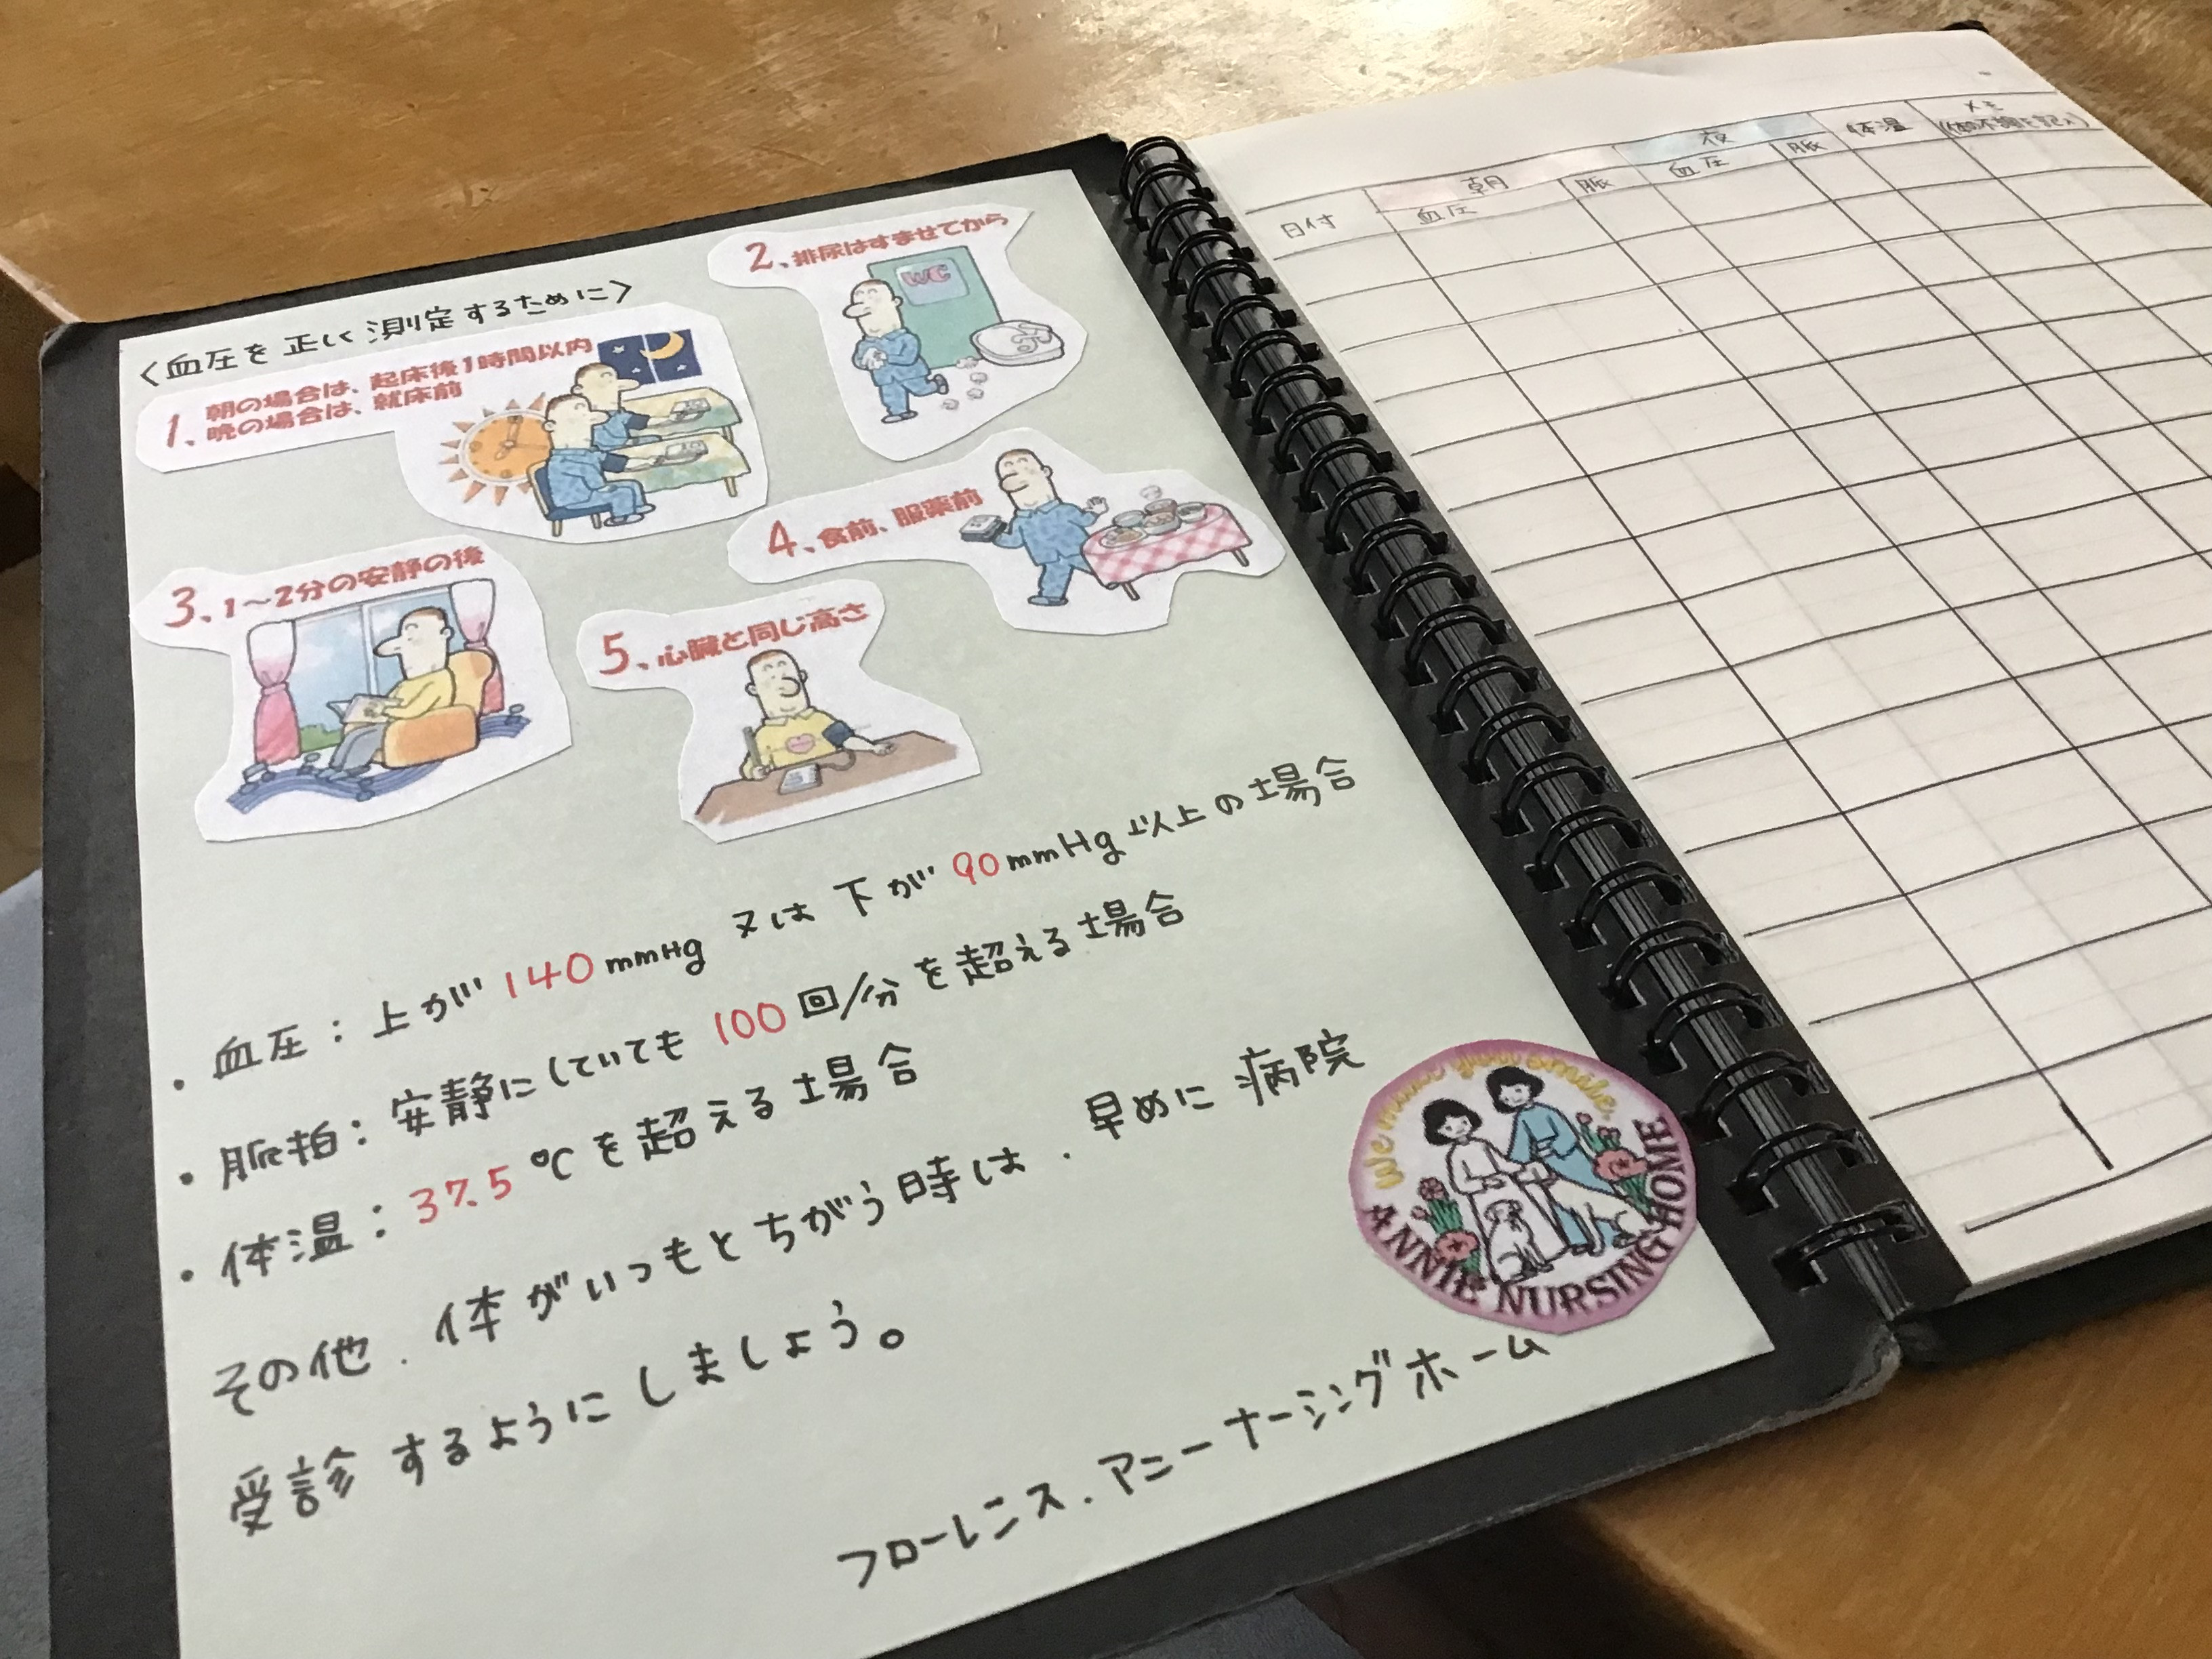 〈血圧を正しく測定するために〉
1、朝の場合は、起床後1時間以内
晩の場合は、就床前
2、排尿はすませてから
WC
3、1〜2分の安静の後
4、食前、服薬前
5、心臓と同じ高さ
・血圧：上が140mmHg 又は 下が90mmHg以上の場合
・脈拍：安静にしていても100回/分を超える場合
・体温：37.5℃を超える場合
その他、体がいつもとちがう時は、早めに病院
受診するようにしましょう。
We make you smile.
ANNIE NURSING HOME
フローレンス.アニーナーシングホーム
日付
朝
血圧
脈
夜
血圧
脈
体温
メモ
(体の不調を記入)